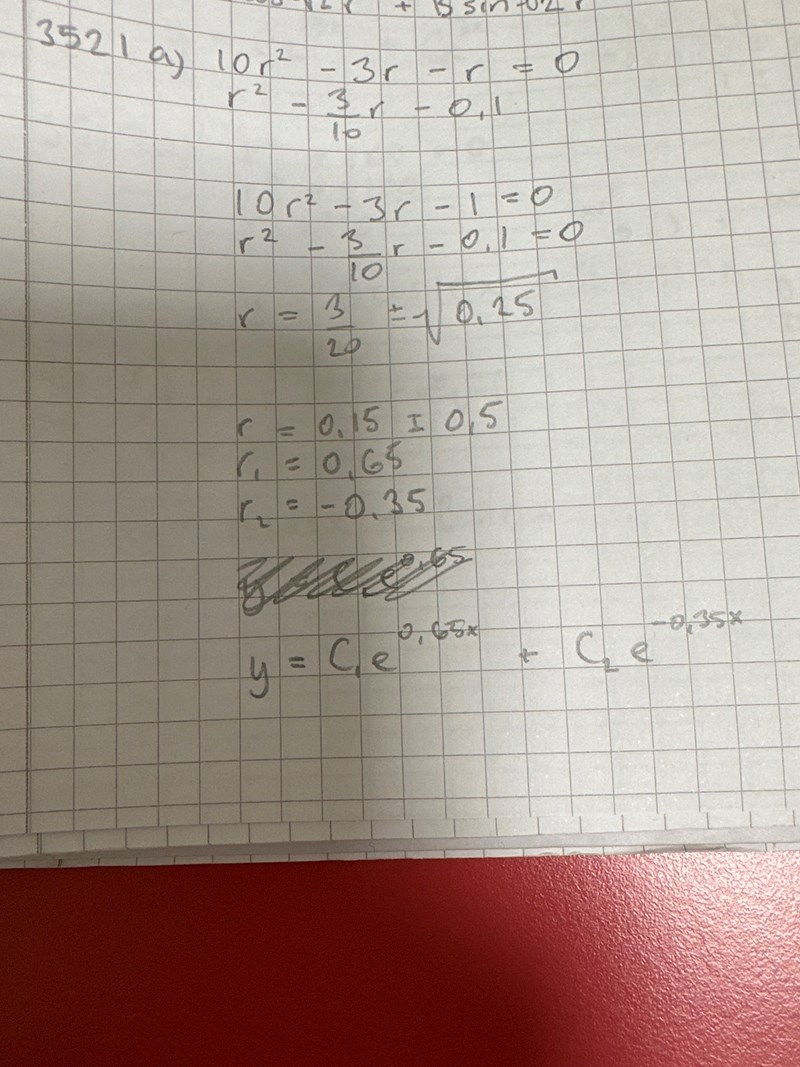 + B sin √2
3521 a) 10r² - 3r - r = 0
r² - 3/10 r - 0,1
10r² - 3r - 1 = 0
r² - 3/10 r - 0,1 = 0
r = 3/20 ± √0,25
r = 0,15 ± 0,5
r₁ = 0,65
r₂ = -0,35
y = C₁e^0,65x + C₂e^-0,35x